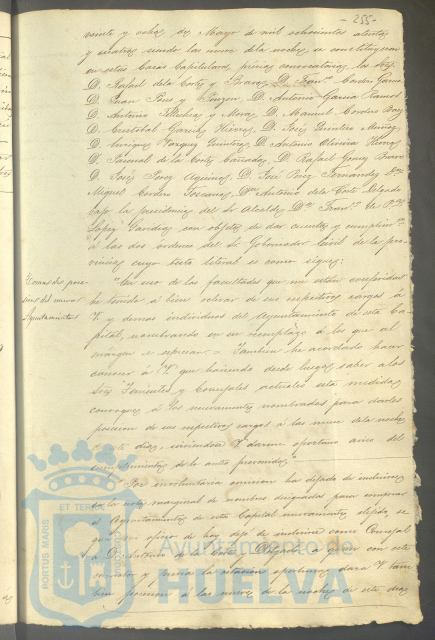 - 255 -
veinte y ocho de Mayo de mil ochocientos
y cuatro siendo las nueve de la noche, se constituyeron
en estas Casas Capitulares, previa convocatoria, los Sres.
D. Rafael de la Corte y Bravo, D. Franco. Cordero García
D. Juan Pons y D. Antonio García Ramos
D. Antonio y Mora, D. Manuel Cordero
D. Cristobal García D. José Quintero Muñoz
D. Enrique Vazquez Quintero, D. Antonio Oliveira
D. Pascual de la Corte D. Rafael Gomez Bravo
D. José Perez Aquino, D. José Perez Fernandez, Dn
Miguel Cordero Toscano, Dn Antonio de la Corte Delgado
bajo la presidencia del Sr Alcalde Dn Franco. de
Lopez con objeto de dar cuenta y
á las dos órdenes del Sr Gobernador Civil de la pro-
vincia cuyo testo literal es como sigue:
Toma de pose-
sion del nuevo
Ayuntamiento
"En uso de las facultades que me están conferidas
he tenido á bien relevar de sus respectivos cargos á
V. y demas individuos del Ayuntamiento de esta Ca-
pital, nombrando en su remplazo á los que al
margen se espresan = Tambien he acordado hacer
conocer á V. que haciendo desde luego saber a los
Sres Tenientes y Concejales actuales esta medida,
convoque á los nuevamente nombrados para darles
posesion de sus respectivos cargos á las nueve de la noche
de este dia, sirviendose V. darme oportuno aviso del
cumplimiento de lo antes prevenido."
"Por involuntaria omision ha dejado de incluirse
en la nota marginal de nombres designados para componer
el Ayuntamiento de esta Capital nuevamente elejido, se
que en oficio de hoy dejé de incluirse como Concejal
á D. Antonio de la Corte y Delgado á quien con esta
y previa la citacion oportuna dará V. tam
bien posesion á las nueve de la noche de este dia
PORTUS MARIS
ET TERRAE
Ayuntamiento de
HUELVA